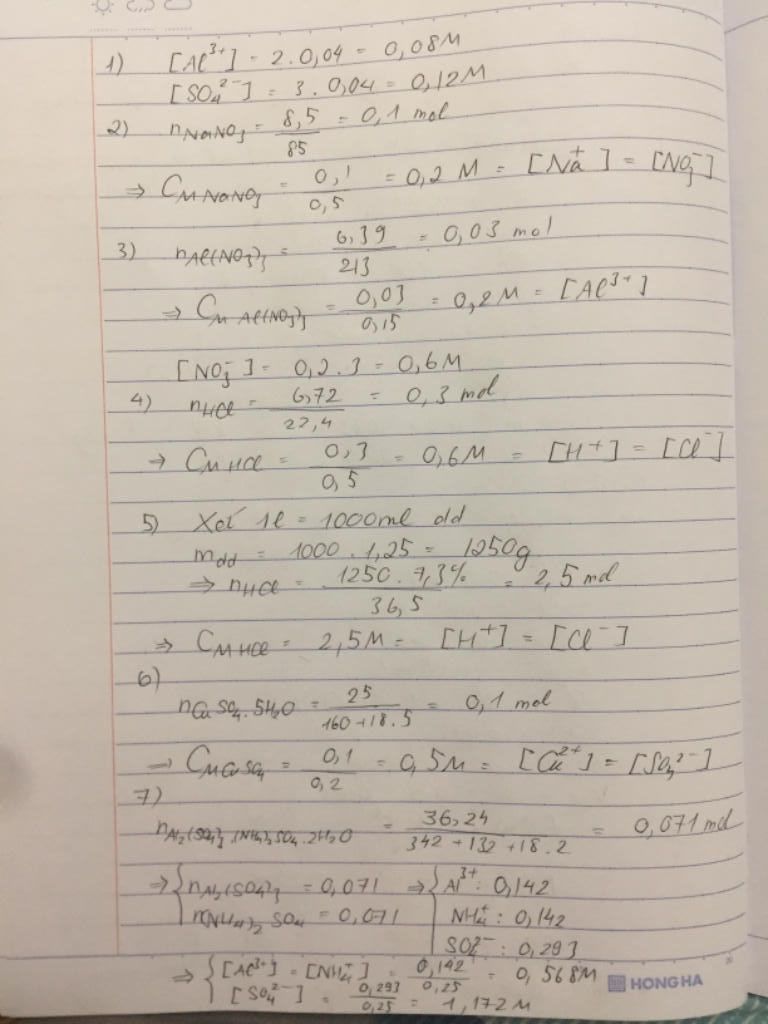 1) [Al³⁺] = 2.0,04 = 0,08M
[SO₄²⁻] = 3.0,04 = 0,12M
2) nNaNO₃ = 8,5/85 = 0,1 mol
⇒ CM NaNO₃ = 0,1/0,5 = 0,2 M = [Na⁺] = [NO₃⁻]
3) nAl(NO₃)₃ = 6,39/213 = 0,03 mol
⇒ CM Al(NO₃)₃ = 0,03/0,15 = 0,2M = [Al³⁺]
[NO₃⁻] = 0,2.3 = 0,6M
4) nHCl = 6,72/22,4 = 0,3 mol
→ CM HCl = 0,3/0,5 = 0,6M = [H⁺] = [Cl⁻]
5) Xét 1l = 1000ml dd
mdd = 1000.1,25 = 1250g
⇒ nHCl = 1250.7,3%/36,5 = 2,5 mol
⇒ CM HCl = 2,5M = [H⁺] = [Cl⁻]
6)
nCuSO₄.5H₂O = 25/160+18.5 = 0,1 mol
→ CM CuSO₄ = 0,1/0,2 = 0,5M = [Cu²⁺] = [SO₄²⁻]
7)
nAl₂(SO₄)₃.(NH₄)₂SO₄.2H₂O = 36,24/342+132+18.2 = 0,071 mol
⇒ { nAl₂(SO₄)₃ = 0,071 ⇒ { Al³⁺: 0,142
n(NH₄)₂SO₄ = 0,071 NH₄⁺: 0,142
SO₄²⁻: 0,293
⇒ { [Al³⁺] = [NH₄⁺] = 0,142/0,25 = 0,568M
[SO₄²⁻] = 0,293/0,25 = 1,172M
HONG HA